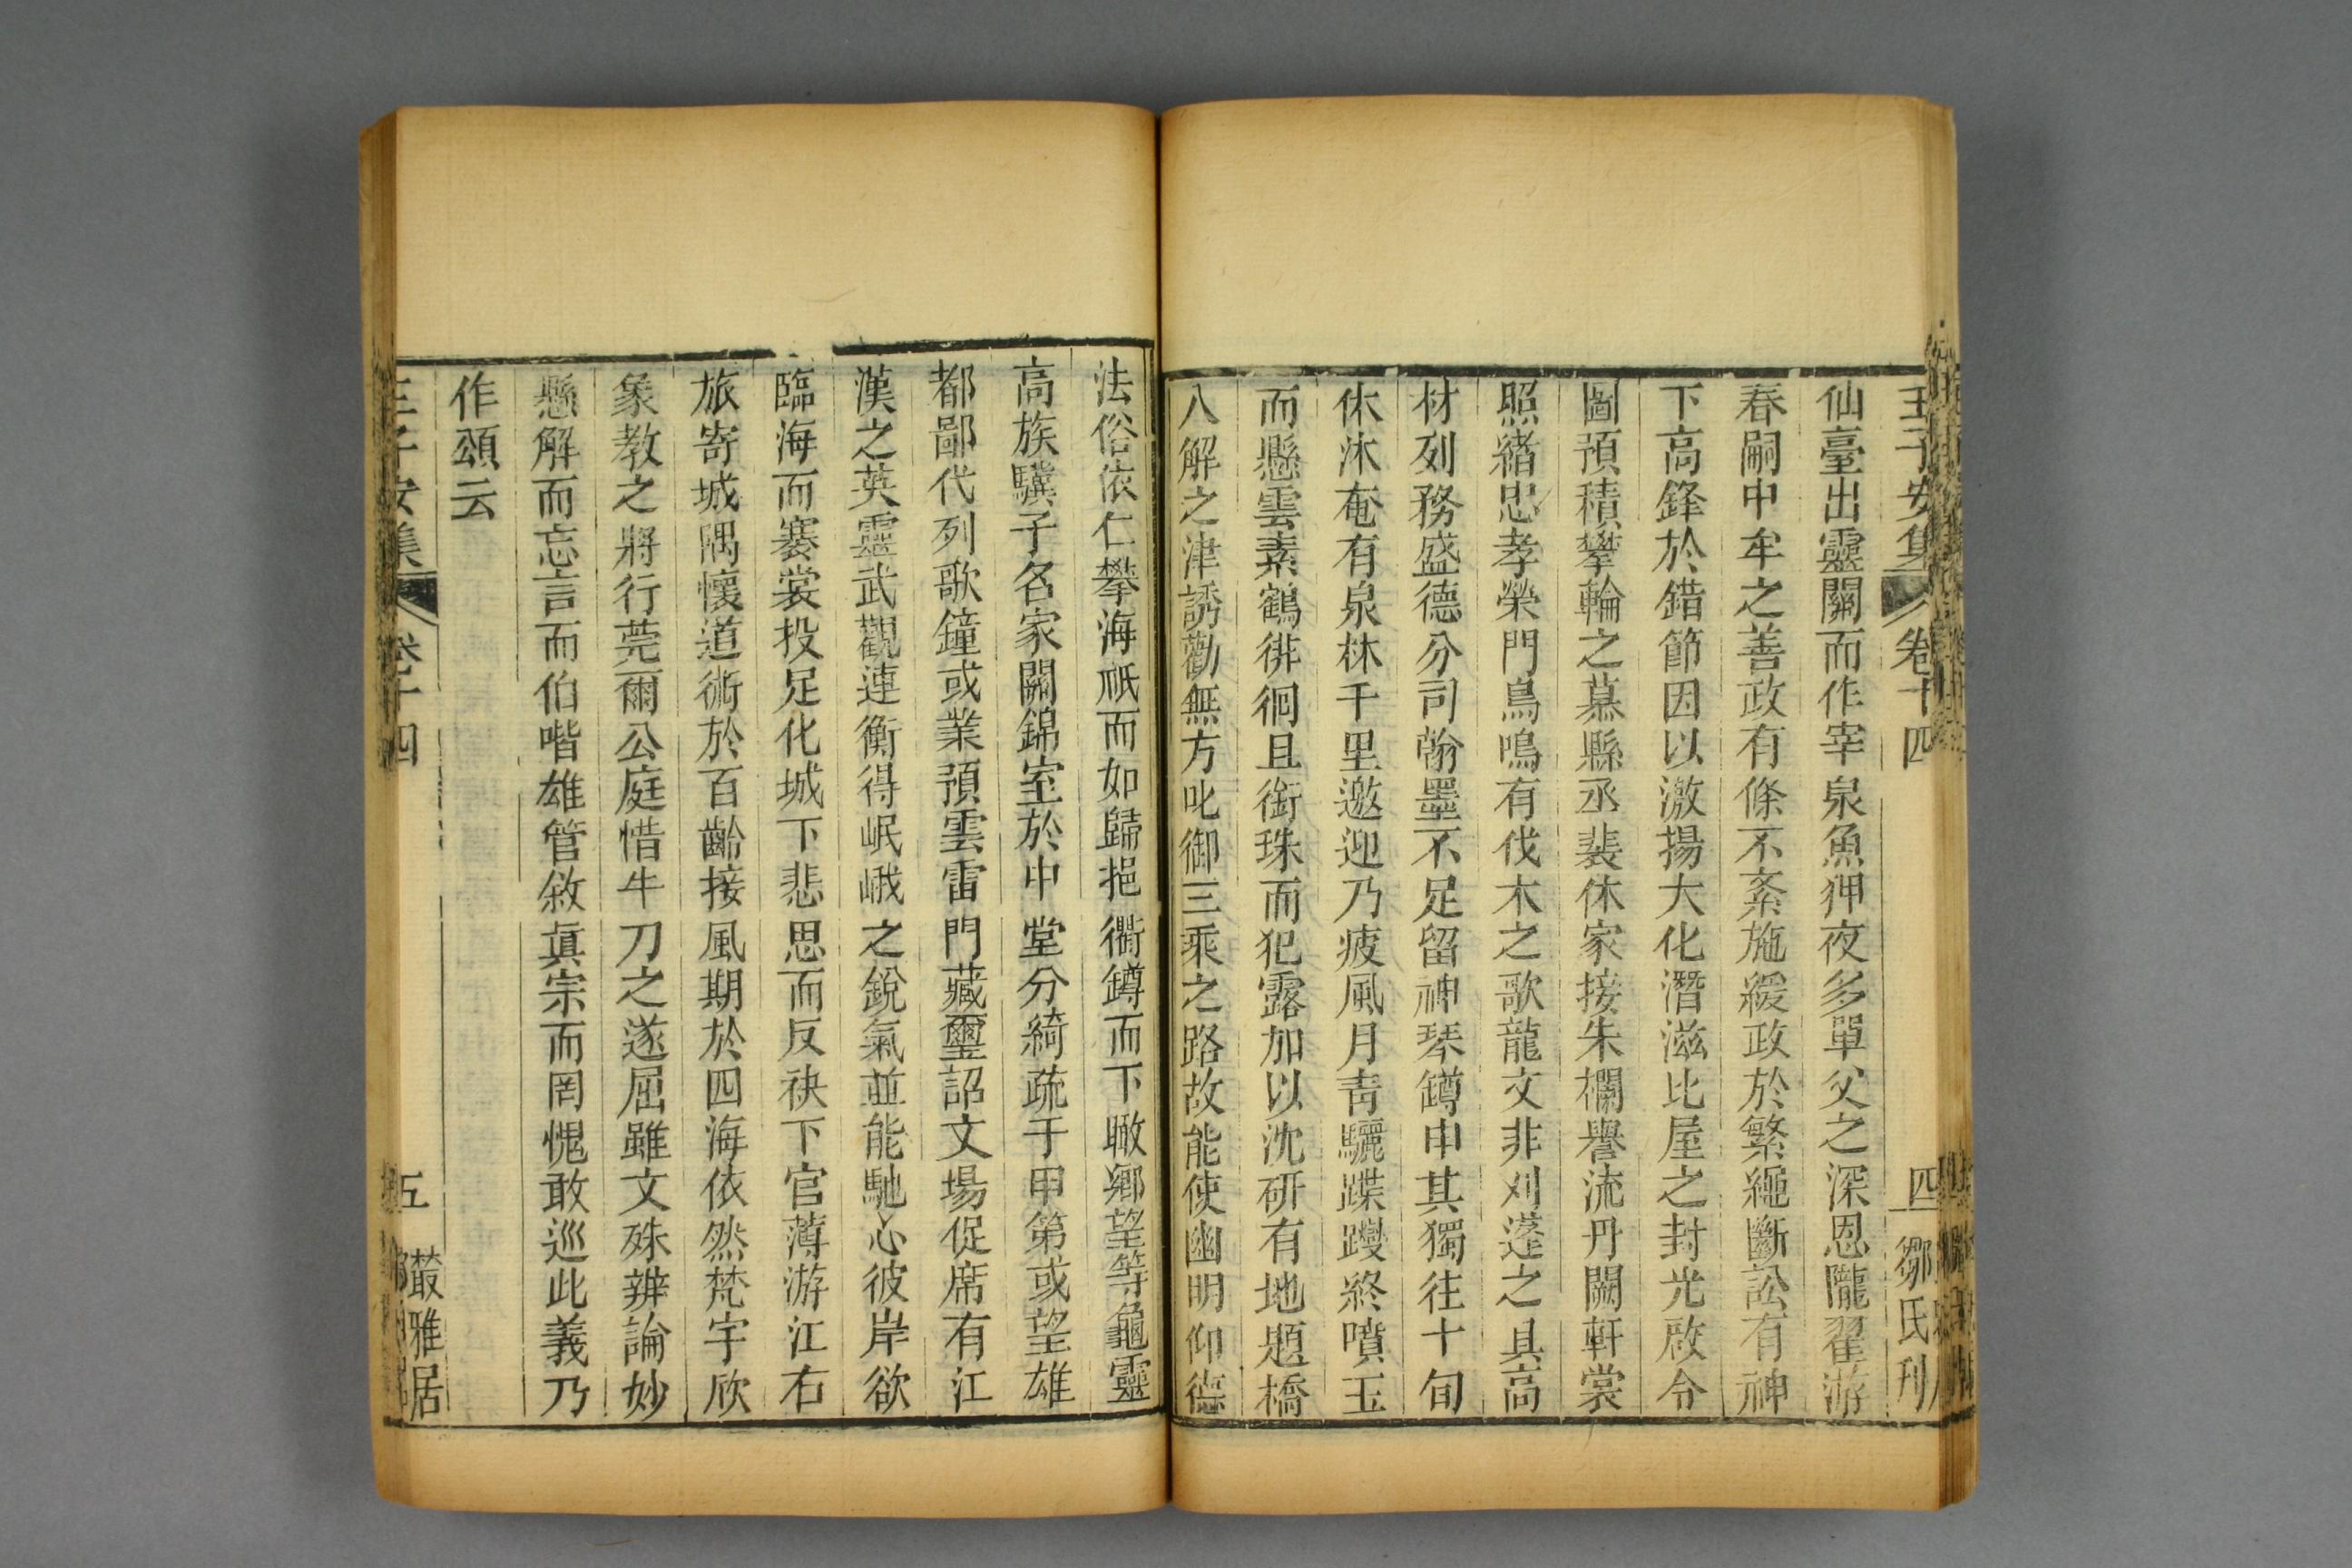 王子安集 卷十四 四 鄒氏刊
仙臺出靈關而作宰泉魚狎夜多單父之深恩隴翟游
春嗣中牟之善政有條不紊施緩政於繁繩斷訟有神
下高鋒於錯節因以激揚大化潛滋比屋之封光啟令
圖預積攀輪之慕縣丞裴休家接朱欄譽流丹闕軒裳
照緒忠孝榮門鳥鳴有伐木之歌龍文非刈蓬之具高
材列務盛德分司翰墨不足留神琴罇申其獨往十旬
休沐奄有泉林千里邀迎乃疲風月青驪蹀躞終噴玉
而懸雲素鶴徘徊且銜珠而犯露加以沈研有地題橋
八解之津誘勸無方叱御三乘之路故能使幽明仰德
法俗依仁攀海祇而如歸挹衢罇而下瞰鄉望等龜靈
高族驥子名家闢錦室於中堂分綺疏于甲第或望雄
都鄙代列歌鐘或業預雲雷門藏璽詔文場促席有江
漢之英靈武觀連衡得岷峨之銳氣並能馳心彼岸欲
臨海而褰裳投足化城下悲思而反袂下官薄游江右
旅寄城隅懷道術於百齡接風期於四海依然梵宇欣
象教之將行莞爾公庭惜牛刀之遂屈雖文殊辨論妙
懸解而忘言而伯喈雄管敘眞宗而罔愧敢巡此義乃
作頌云
王子安集 卷十四 五 叢雅居